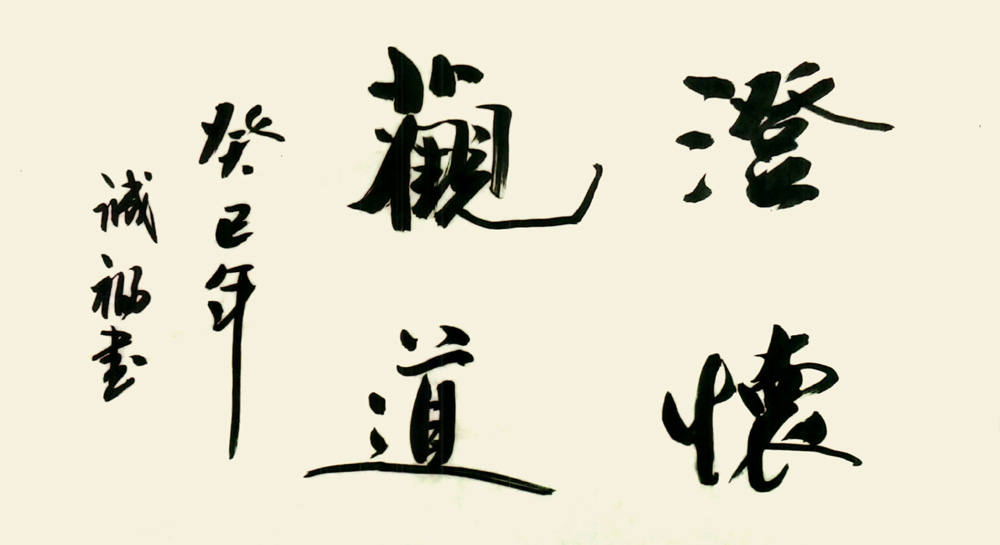 澄懷
觀道
癸巳年
誠福書